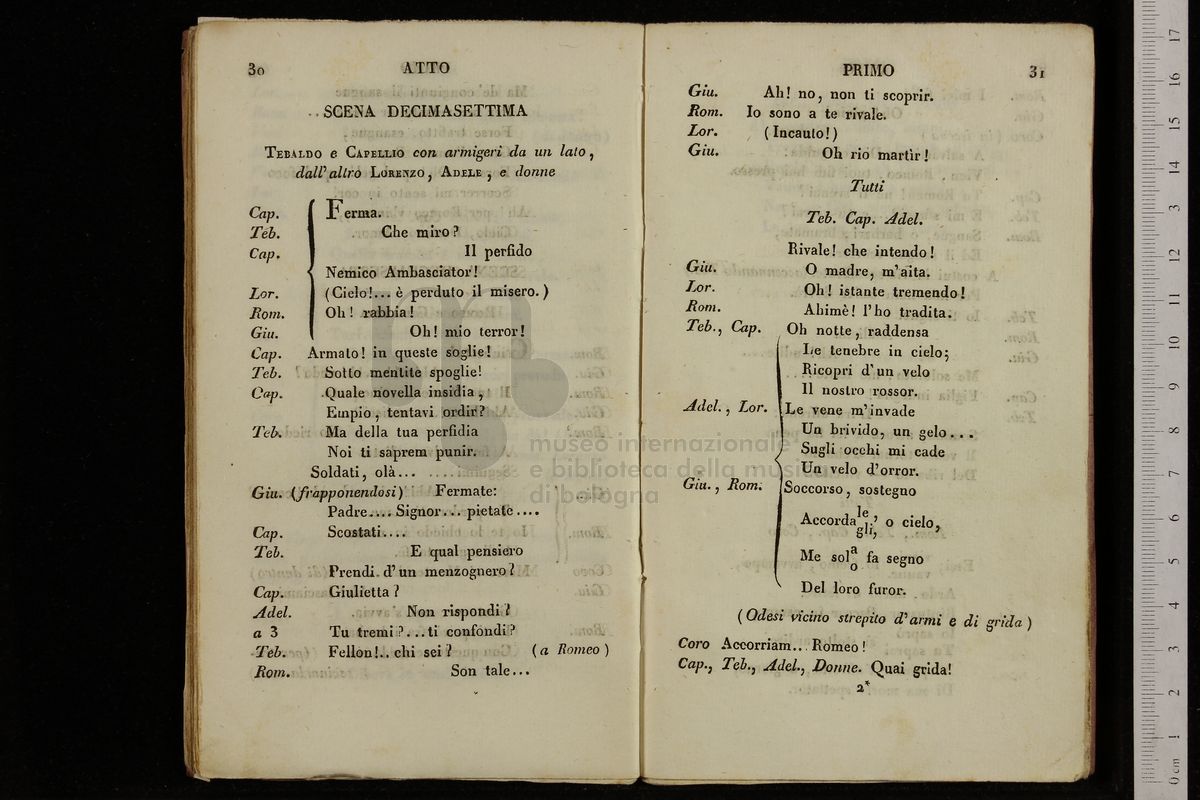 30 ATTO
SCENA DECIMASETTIMA
TEBALDO e CAPELLIO con armigeri da un lato,
dall'altro LORENZO, ADELE, e donne
Cap. Ferma.
Teb. Che miro?
Cap. Il perfido
Nemico Ambasciator!
Lor. (Cielo!... è perduto il misero.)
Rom. Oh! rabbia!
Giu. Oh! mio terror!
Cap. Armato! in queste soglie!
Teb. Sotto mentite spoglie!
Cap. Quale novella insidia,
Empio, tentavi ordir?
Teb. Ma della tua perfidia
Noi ti saprem punir.
Soldati, olà...
Giu. (frapponendosi) Fermate:
Padre.... Signor... pietate....
Cap. Scostati....
Teb. E qual pensiero
Prendi d'un menzognero?
Cap. Giulietta?
Adel. Non rispondi?
a 3 Tu tremi?...ti confondi?
Teb. Fellon!.. chi sei? (a Romeo)
Rom. Son tale...
PRIMO 31
Giu. Ah! no, non ti scoprir.
Rom. Io sono a te rivale.
Lor. (Incauto!)
Giu. Oh rio martìr!
Tutti
Teb. Cap. Adel.
Rivale! che intendo!
Giu. O madre, m'aita.
Lor. Oh! istante tremendo!
Rom. Ahimè! l'ho tradita.
Teb., Cap. Oh notte, raddensa
Le tenebre in cielo;
Ricopri d'un velo
Il nostro rossor.
Adel., Lor. Le vene m'invade
Un brivido, un gelo...
Sugli occhi mi cade
Un velo d'orror.
Giu., Rom. Soccorso, sostegno
Accorda le, gli, o cielo,
Me sol a o fa segno
Del loro furor.
(Odesi vicino strepito d'armi e di grida)
Coro Accorriam... Romeo!
Cap., Teb., Adel., Donne. Quai grida!
2*
museo internazionale
e biblioteca della musica
di bologna
0 cm 1 2 3 4 5 6 7 8 9 10 11 12 13 14 15 16 17